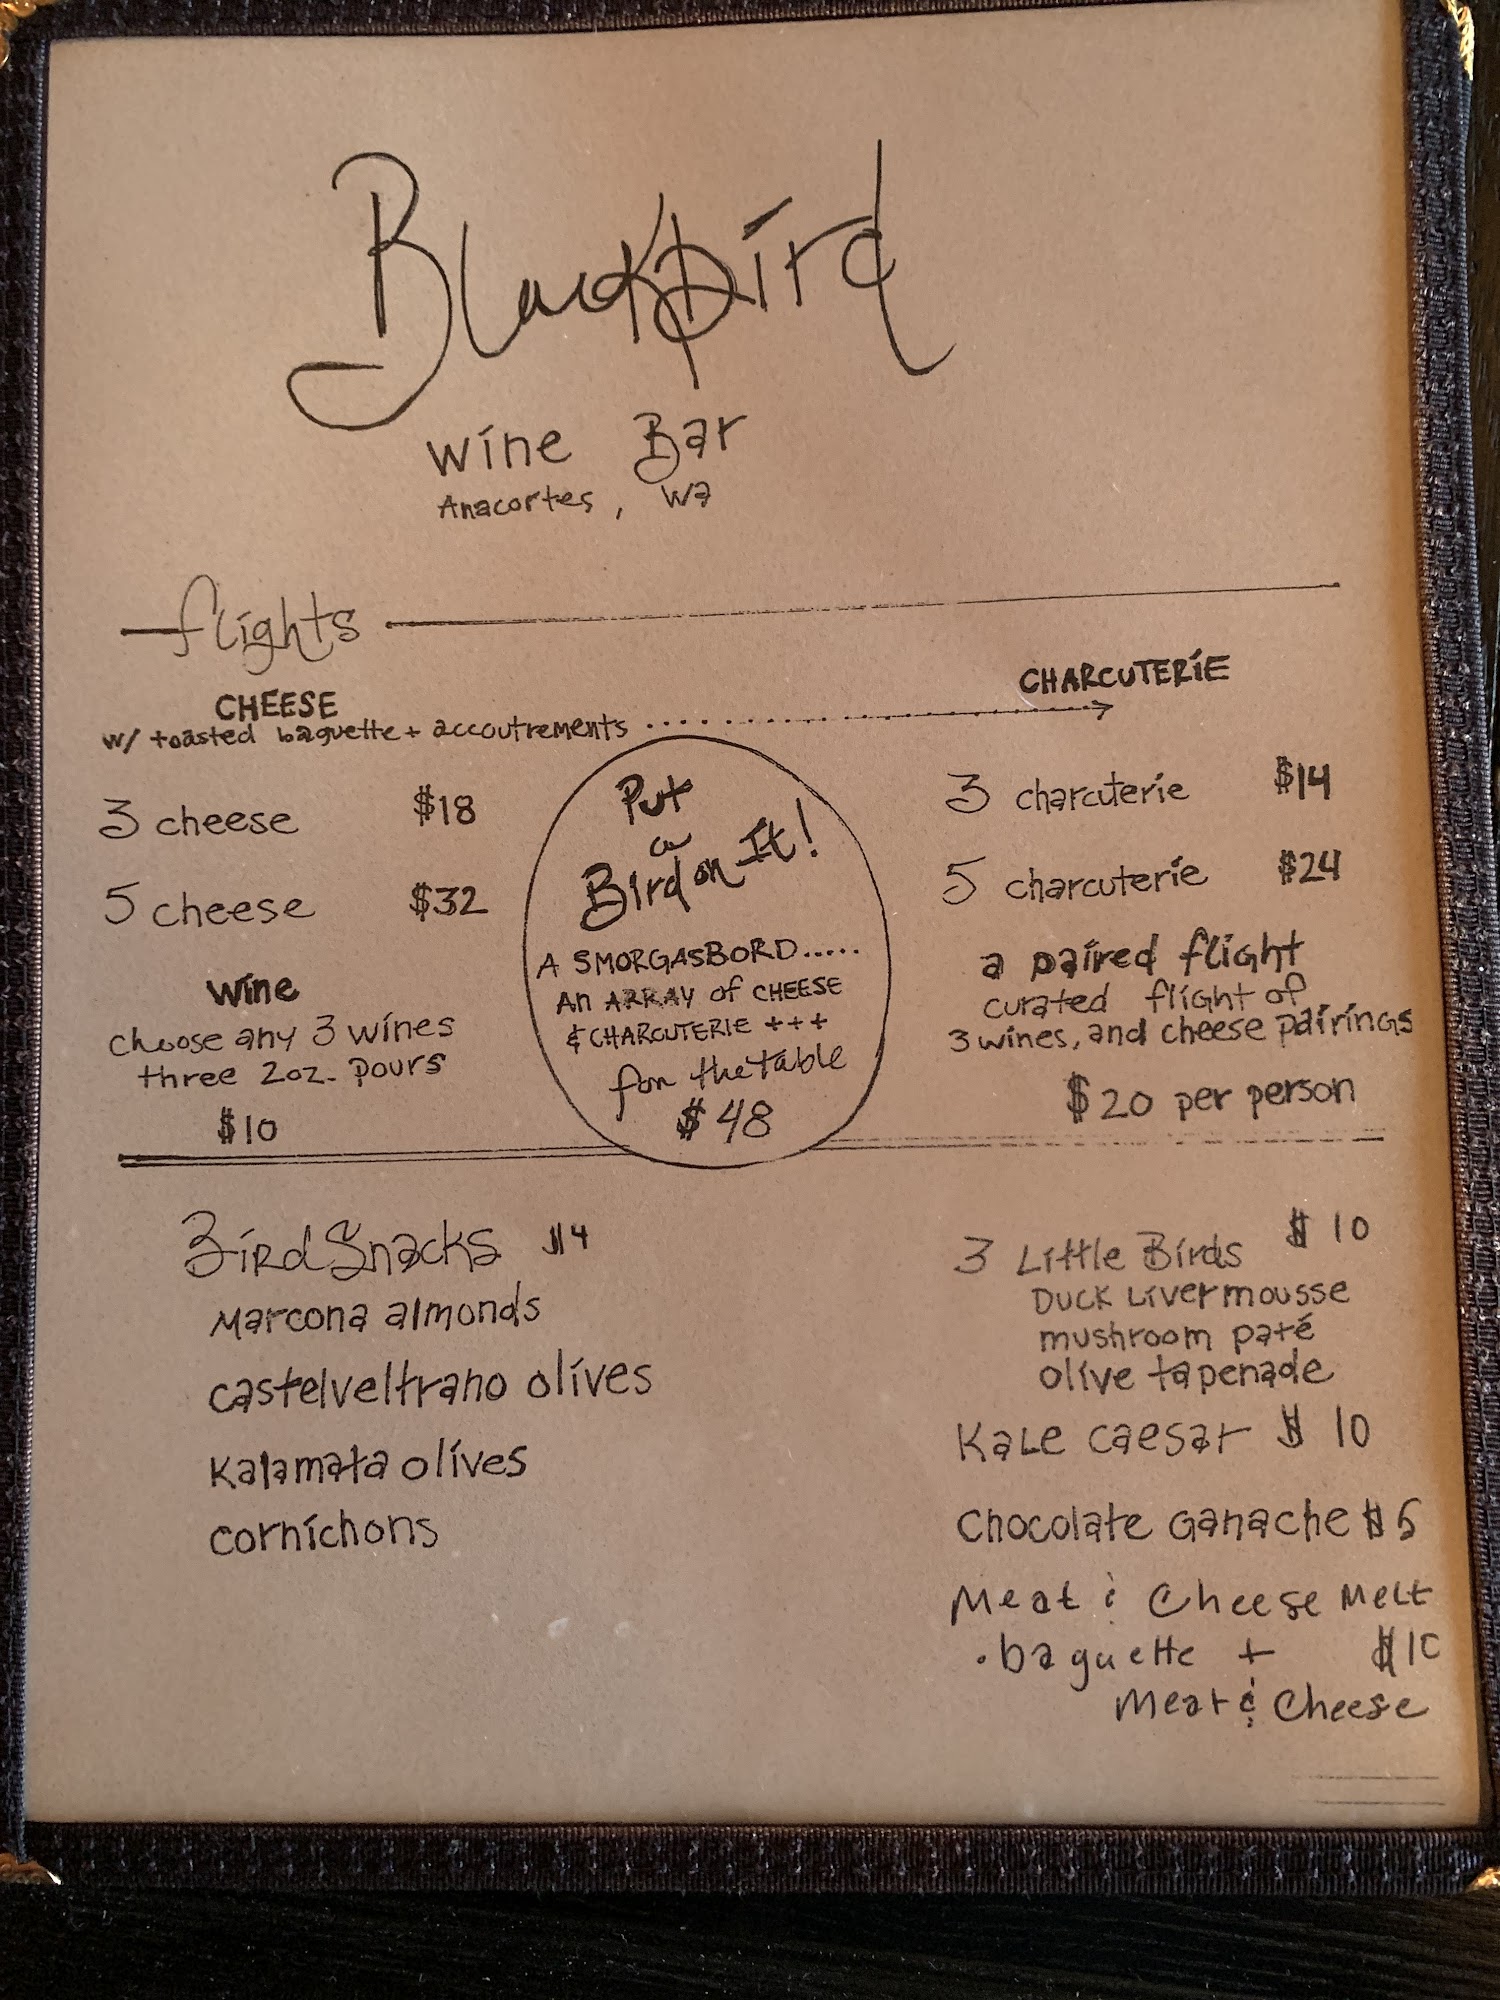 Blackbird
wine Bar
Anacortes, Wa
flights
CHEESE
w/ toasted baguette + accoutrements ..........
3 cheese $18
5 cheese $32
wine
choose any 3 wines
three 2oz. pours
$10
Put
a
Bird on It!
A SMORGASBORD.....
An ARRAY of CHEESE
& CHARCUTERIE +++
for the table
$48
CHARCUTERIE
3 charcuterie $14
5 charcuterie $24
a paired flight
curated flight of
3 wines, and cheese pairings
$20 per person
Bird Snacks $4
Marcona almonds
castelveltrano olives
Kalamata olives
cornichons
3 Little Birds $10
Duck Liver mousse
mushroom paté
olive tapenade
Kale caesar $10
Chocolate Ganache $6
Meat & Cheese Melt
• baguette + $10
Meat & Cheese